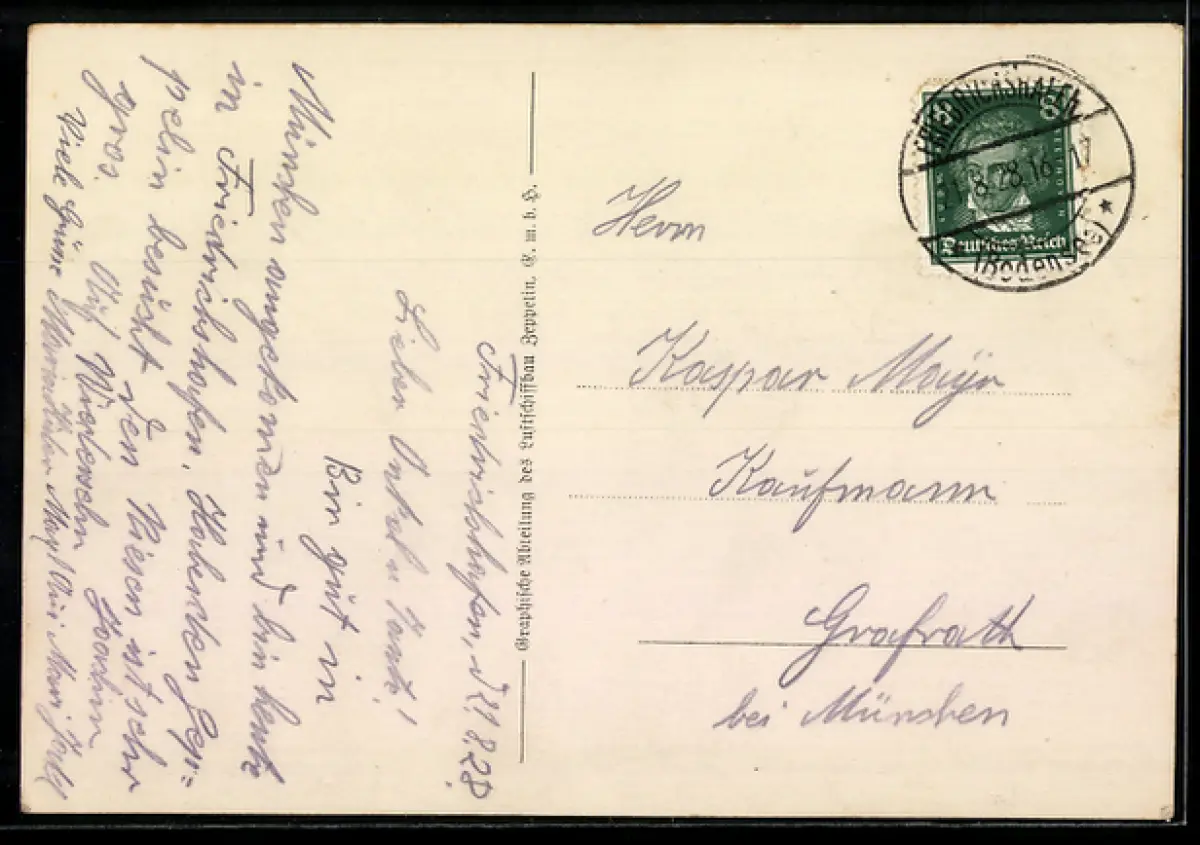 Friedrichshafen, d. 1.8.28.
Lieber Onkel u Tante!
Bin gut in
München angekommen und bin heute
in Friedrichshafen. Habe den Zep=
pelin besucht den Riesen ist sehr
gros. Auf Wiedersehn
Viele Grüße
Graphische Abteilung des Luftschiffbau Zeppelin, G. m. b. H.
8 8
Deutsches Reich
FRIEDRICHSHAFEN
1.8.28.16-17
(Bodensee)
Herrn
Kaspar Mayr
Kaufmann
Grafrath
bei München